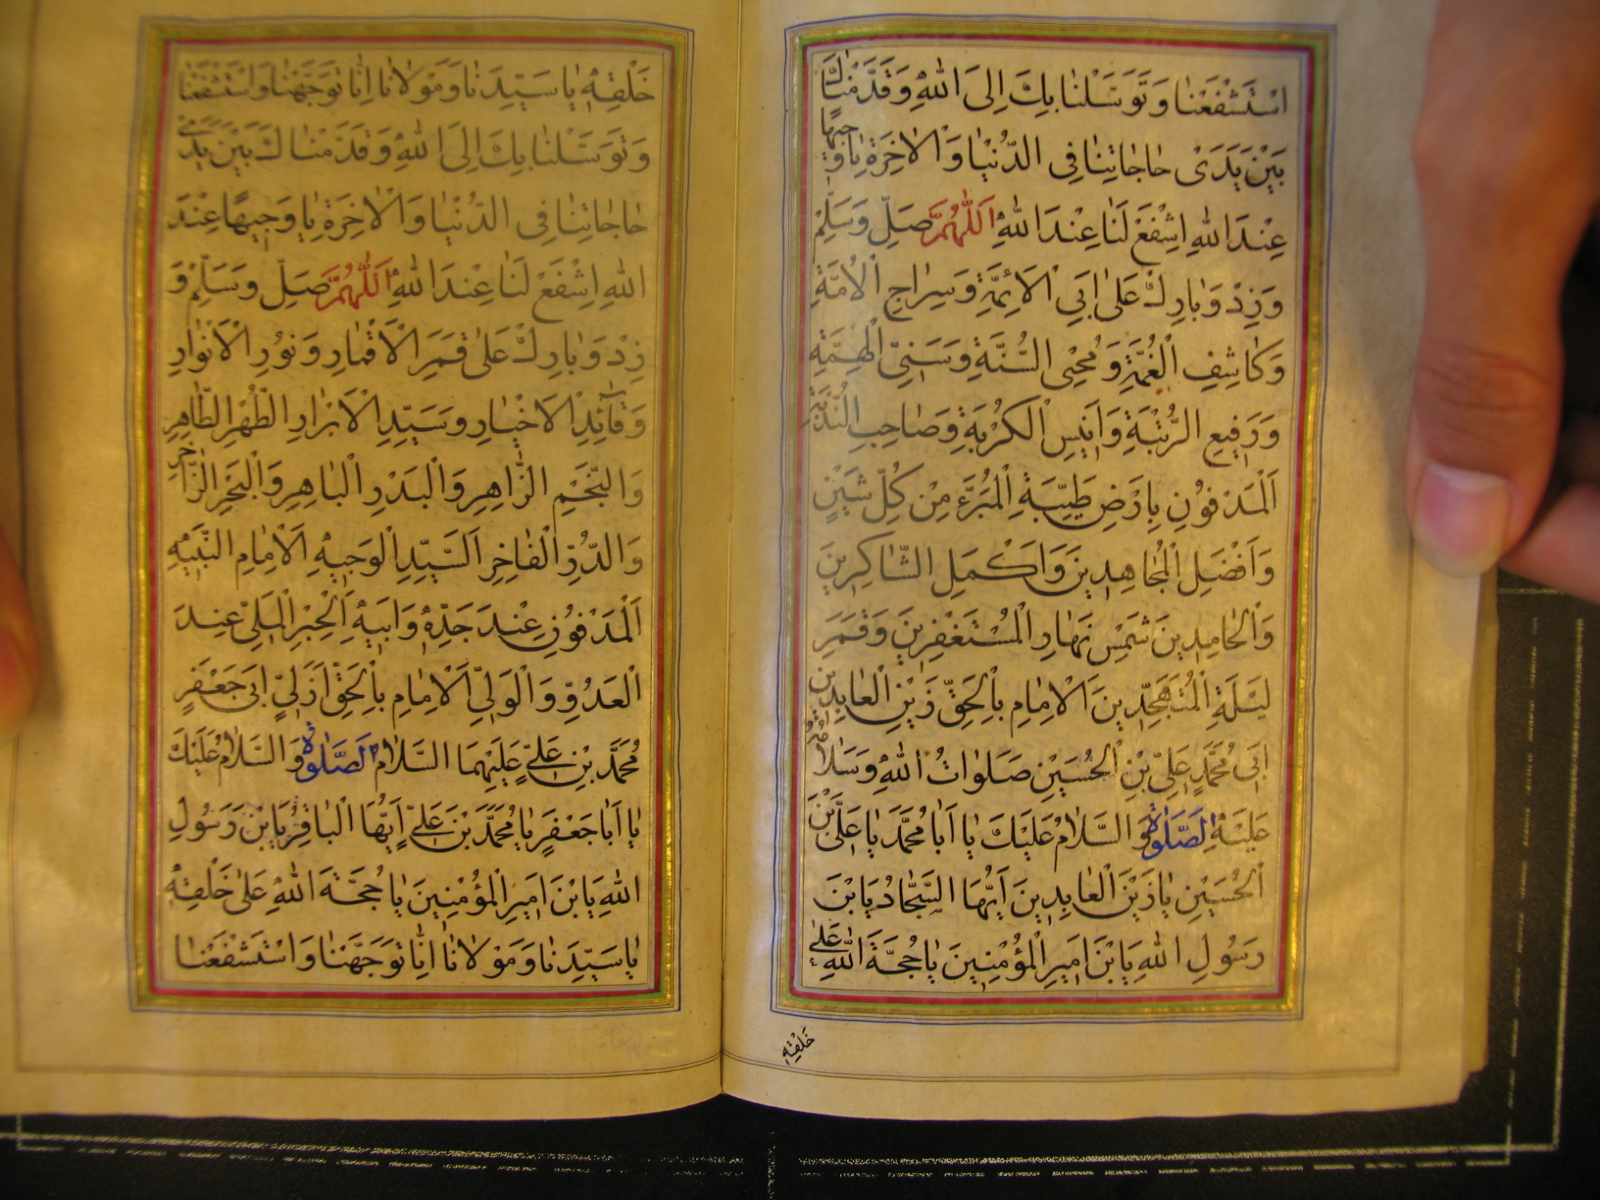 اسْتَشْفَعْنا وَتَوَسَّلْنا بِكَ اِلَى اللهِ وَقَدَّمْناكَ
بَيْنَ يَدَىْ حاجاتِنا فِى الدُّنْيا وَالْاخِرَةِ يا وَجيهاً
عِنْدَ اللهِ اِشْفَعْ لَنا عِنْدَ اللهِ اَللّهُمَّ صَلِّ وَسَلِّمْ
وَزِدْ وَبارِكْ عَلى اَبِى الْاَئِمَّةِ وَسِراجِ الْاُمَّةِ
وَكاشِفِ الْغُمَّةِ وَمُحْيِى السُّنَّةِ وَسَنِىِّ الْهِمَّةِ
وَرَفيعِ الرُّتْبَةِ وَاَنيسِ الْكُرْبَةِ وَصاحِبِ النُّدْبَةِ
اَلْمَدْفُونِ بِاَرْضِ طَيِّبَةِ الْمُبَرَّءِ مِنْ كُلِّ شَيْنٍ
وَاَفْضَلِ الْمُجاهِدينَ وَاَكْمَلِ الشّاكِرينَ
وَالْحامِدينَ شَمْسِ نَهارِ الْمُسْتَغْفِرينَ وَقَمَرِ
لَيْلَةِ الْمُتَهَجِّدينَ الْاِمامِ بِالْحَقِّ زَيْنِ الْعابِدينَ
اَبى مُحَمَّدٍ عَلِىِّ بْنِ الْحُسَيْنِ صَلَواتُ اللهِ وَسَلامُهُ
عَلَيْهِ اَلصَّلوةُ وَ السَّلامُ عَلَيْكَ يا اَبا مُحَمَّدَ يا عَلِىَّ بْنَ
الْحُسَيْنِ يا زَيْنَ الْعابِدينَ اَيُّهَا السَّجّادُ يَابْنَ
رَسُولِ اللهِ يَابْنَ اَميرِ الْمُؤْمِنينَ يا حُجَّةَ اللهِ عَلى
خَلْقِهِ
خَلْقِهِ يا سَيِّدَنا وَمَوْلانا اِنّا تَوَجَّهْنا وَاسْتَشْفَعْنا
وَتَوَسَّلْنا بِكَ اِلَى اللهِ وَقَدَّمْناكَ بَيْنَ يَدَىْ
حاجاتِنا فِى الدُّنْيا وَالْاخِرَةِ يا وَجيهاً عِنْدَ
اللهِ اِشْفَعْ لَنا عِنْدَ اللهِ اَللّهُمَّ صَلِّ وَسَلِّمْ وَ
زِدْ وَبارِكْ عَلى قَمَرِ الْاَقْمارِ وَنُورِ الْاَنْوارِ
وَقآئِدِ الْاَخْيارِ وَسَيِّدِ الْاَبْرارِ الطُّهْرِ الطّاهِرِ
وَالنَّجْمِ الزّاهِرِ وَالْبَدْرِ الْباهِرِ وَالْبَحْرِ الزّاخِرِ
وَالدُّرِّ الْفاخِرِ اَلسَّيِّدِ الْوَجيهِ اَلْاِمامِ النَّبيهِ
اَلْمَدْفُونِ عِنْدَ جَدِّهِ وَاَبيهِ اَلْحِبْرِ الْمَلِىِّ عِنْدَ
الْعَدُوِّ وَالْوَلِىِّ اَلْاِمامِ بِالْحَقِّ اَزَلِىٍّ اَبى جَعْفَرٍ
مُحَمَّدِ بْنِ عَلِىٍّ عَلَيْهِمَا السَّلامُ اَلصَّلوةُ وَ السَّلامُ عَلَيْكَ
يا اَبا جَعْفَرٍ يا مُحَمَّدَ بْنَ عَلِىٍّ اَيُّهَا الْباقِرُ يَابْنَ رَسُولِ
اللهِ يَابْنَ اَميرِ الْمُؤْمِنينَ يا حُجَّةَ اللهِ عَلى خَلْقِهِ
يا سَيِّدَنا وَمَوْلانا اِنّا تَوَجَّهْنا وَاسْتَشْفَعْنا